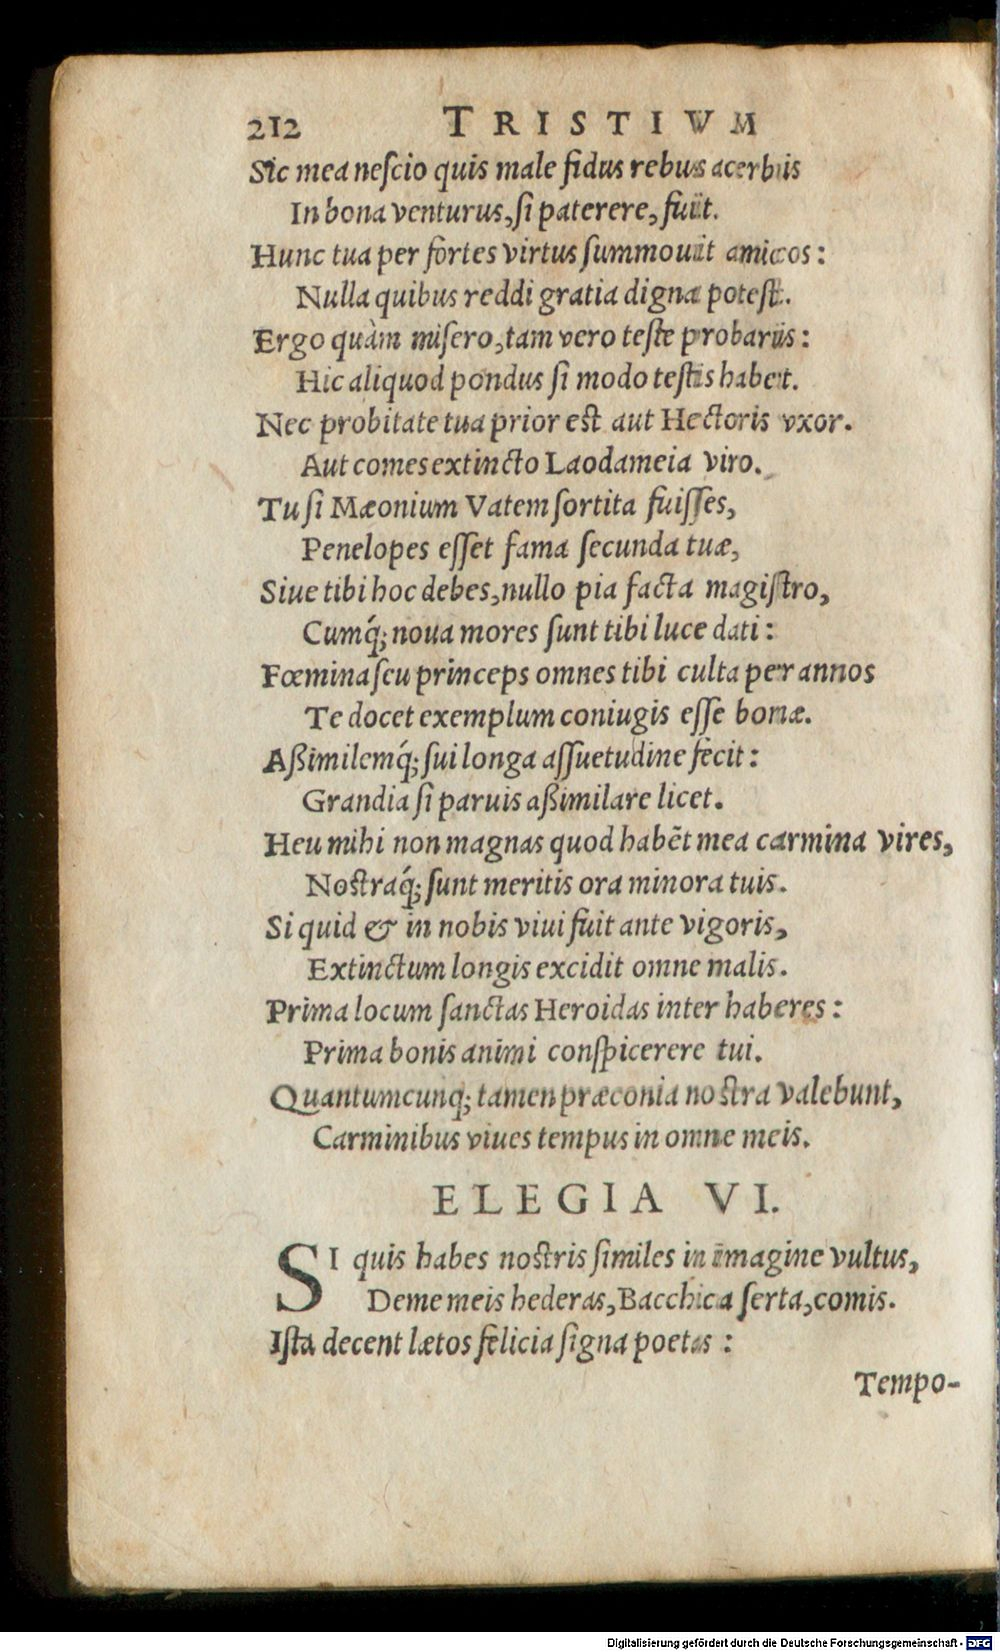 212 TRISTIVM
Sic mea neſcio quis male fidus rebus acerbis
In bona venturus, ſi paterere, fuit.
Hunc tua per fortes virtus ſummouit amicos:
Nulla quibus reddi gratia digna poteſt.
Ergo quàm miſero, tam vero teſte probaris:
Hic aliquod pondus ſi modo teſtis habet.
Nec probitate tua prior eſt aut Hectoris vxor.
Aut comes extincto Laodameia viro.
Tu ſi Mæonium Vatem ſortita fuiſſes,
Penelopes eſſet fama ſecunda tuæ,
Siue tibi hoc debes, nullo pia facta magiſtro,
Cumq́; noua mores ſunt tibi luce dati:
Fœmina ſeu princeps omnes tibi culta per annos
Te docet exemplum coniugis eſſe bonæ.
Aßimilemq́; ſui longa aſſuetudine fecit:
Grandia ſi paruis aßimilare licet.
Heu mihi non magnas quod habēt mea carmina vires,
Noſtraq́; ſunt meritis ora minora tuis.
Si quid & in nobis viui fuit ante vigoris,
Extinctum longis excidit omne malis.
Prima locum ſanctas Heroidas inter haberes:
Prima bonis animi conſpicerere tui.
Quantumcunq; tamen præconia noſtra valebunt,
Carminibus viues tempus in omne meis.
ELEGIA VI.
SI quis habes noſtris ſimiles in imagine vultus,
Deme meis hederas, Bacchica ſerta, comis.
Iſta decent lætos felicia ſigna poetas:
Tempo-
Digitalisierung gefördert durch die Deutsche Forschungsgemeinschaft - DFG